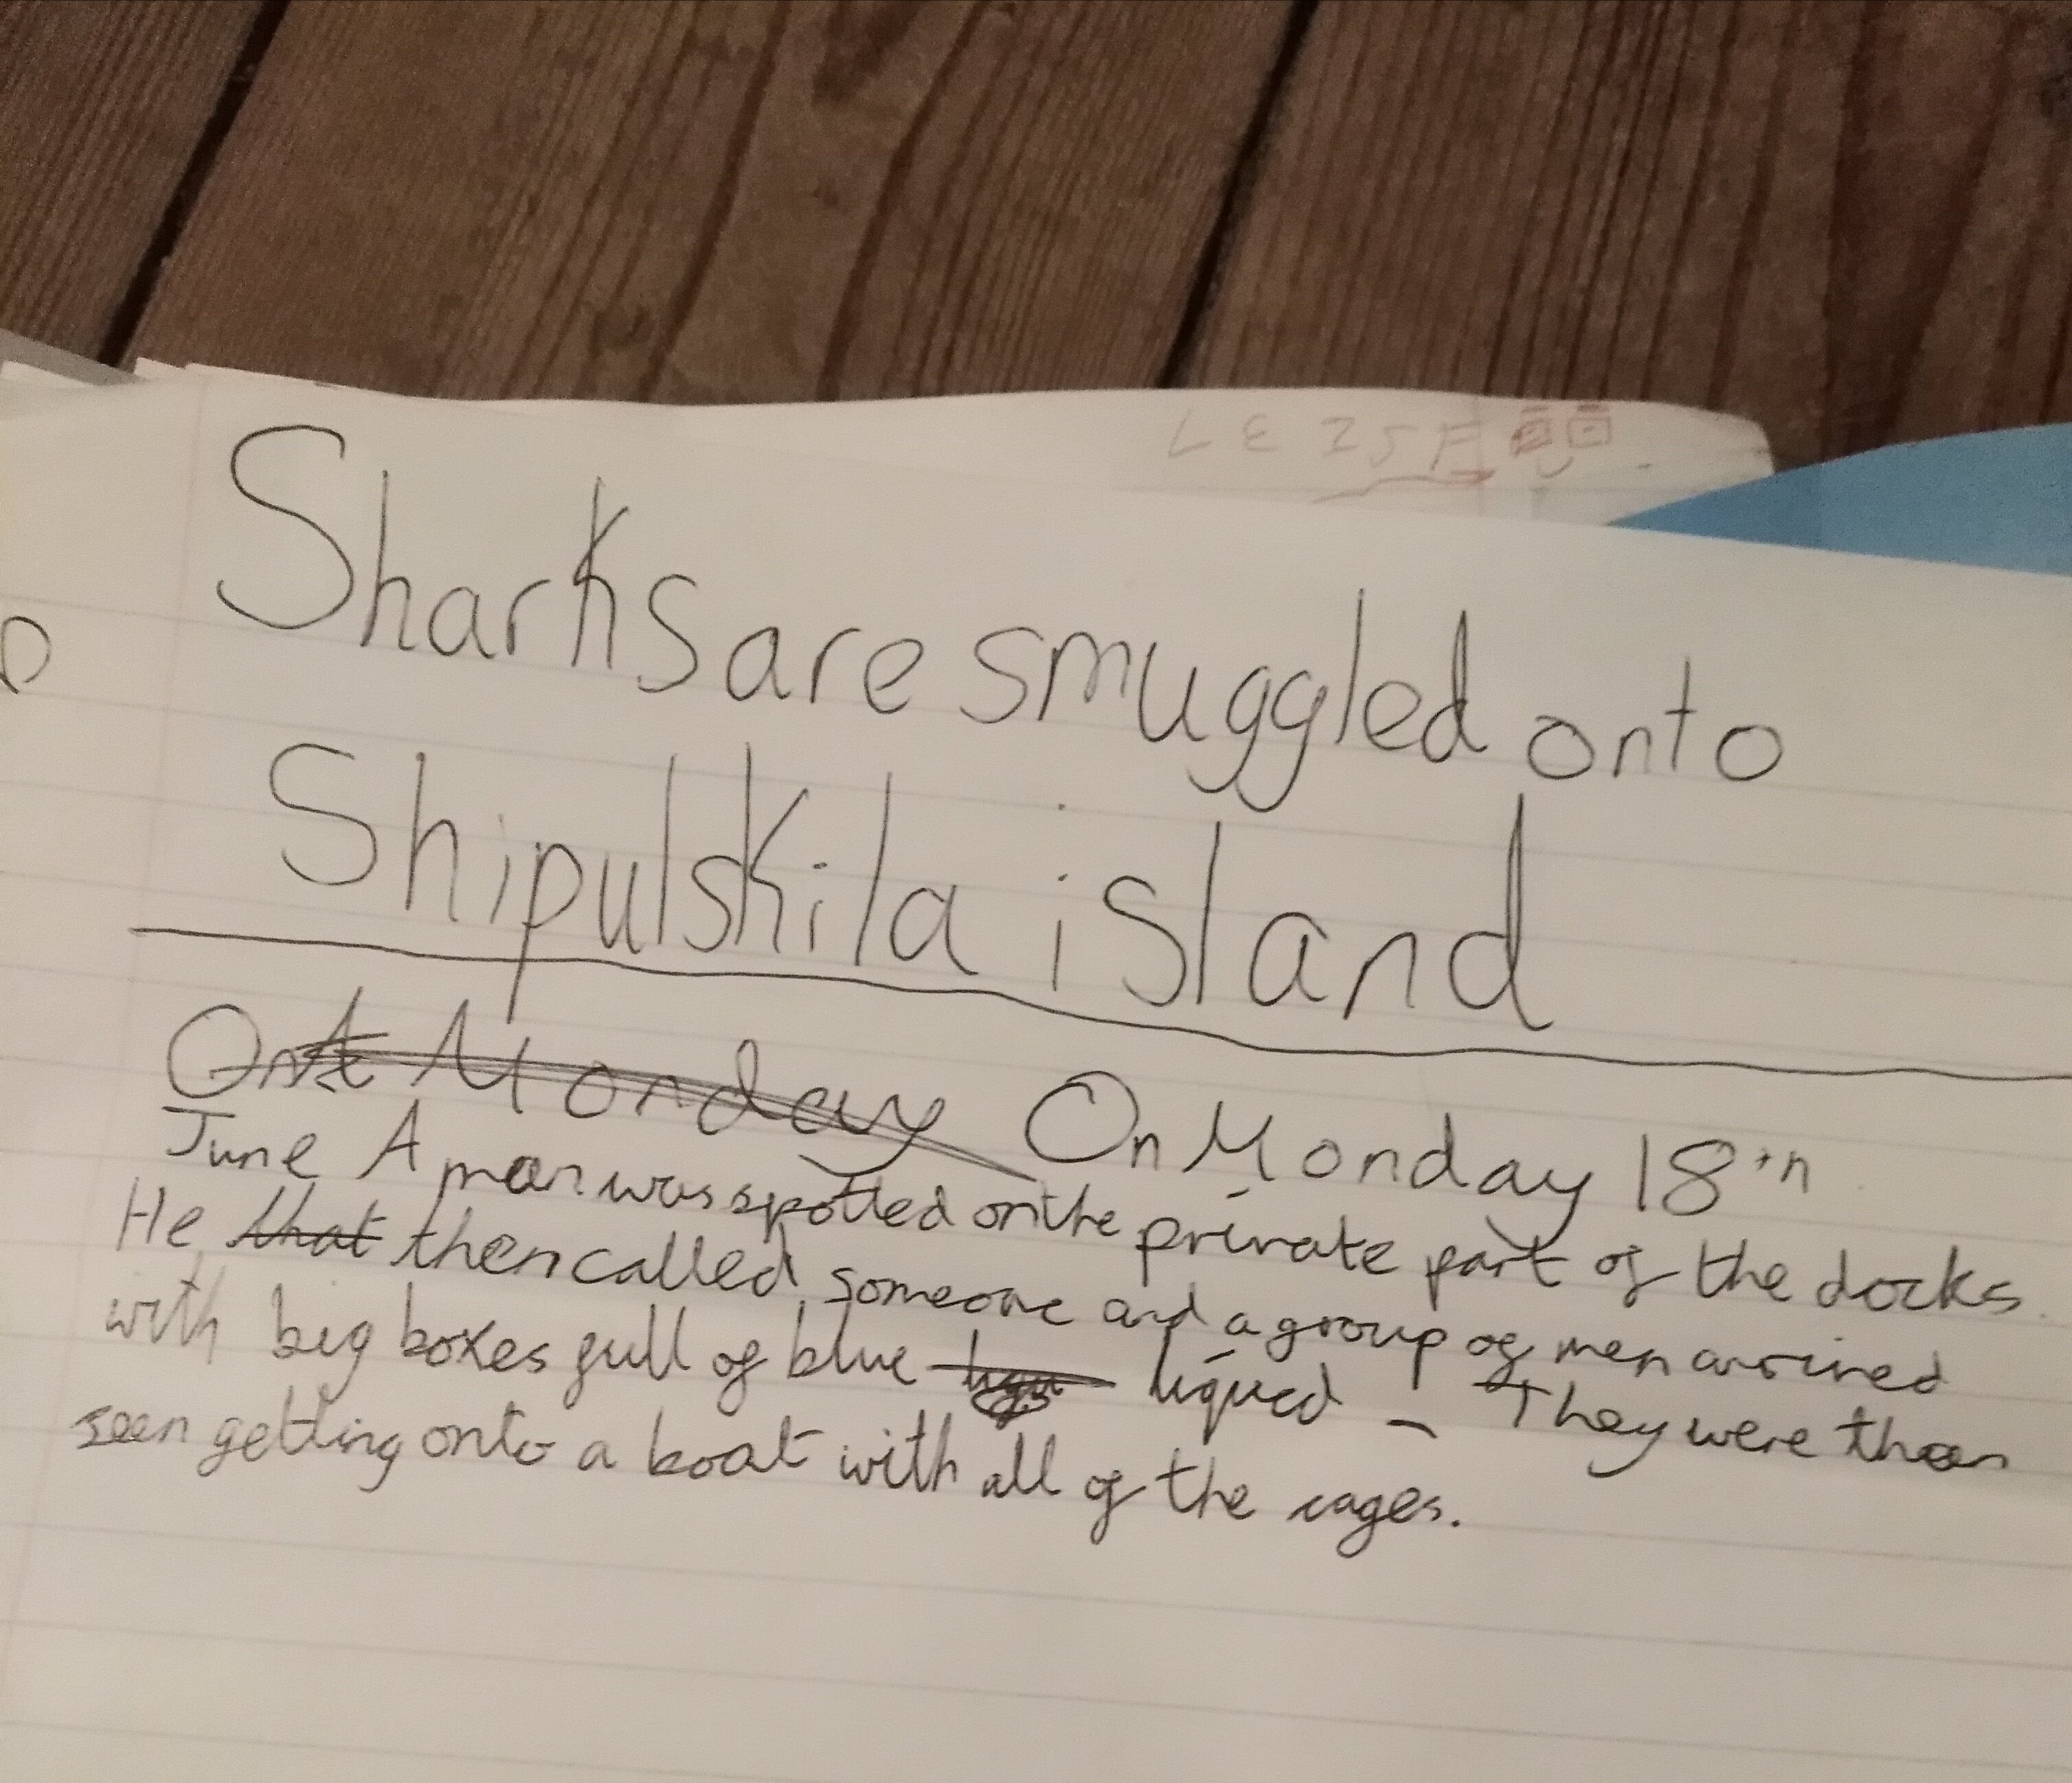 LEISF
Sharks are smuggled onto
Shipulskila island
On Monday On Monday 18th
June A man was spotted on the private part of the docks.
He that then called someone and a group of men arrived
with big boxes full of blue liqued. They were then
seen getting onto a boat with all of the cages.